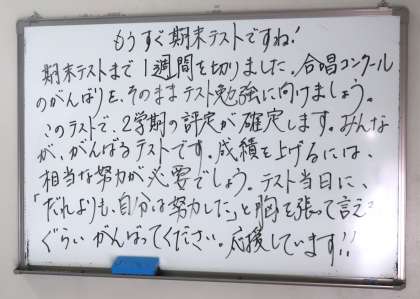 もうすぐ期末テストですね!
期末テストまで1週間を切りました。合唱コンクール
のがんばりを、そのままテスト勉強に向けましょう。
このテストで、2学期の評定が確定します。みんな
が、がんばるテストです。成績を上げるには、
相当な努力が必要でしょう。テスト当日に、
「だれよりも、自分は努力した」と胸を張って言える
ぐらいがんばってください。応援しています!!